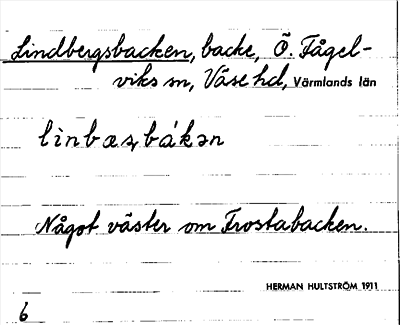 Lindbergsbacken, backe, Ö. Fågel-
viks sn, Väse hd, Värmlands län
Något väster om Frostabacken.
HERMAN HULTSTRÖM 1911
6